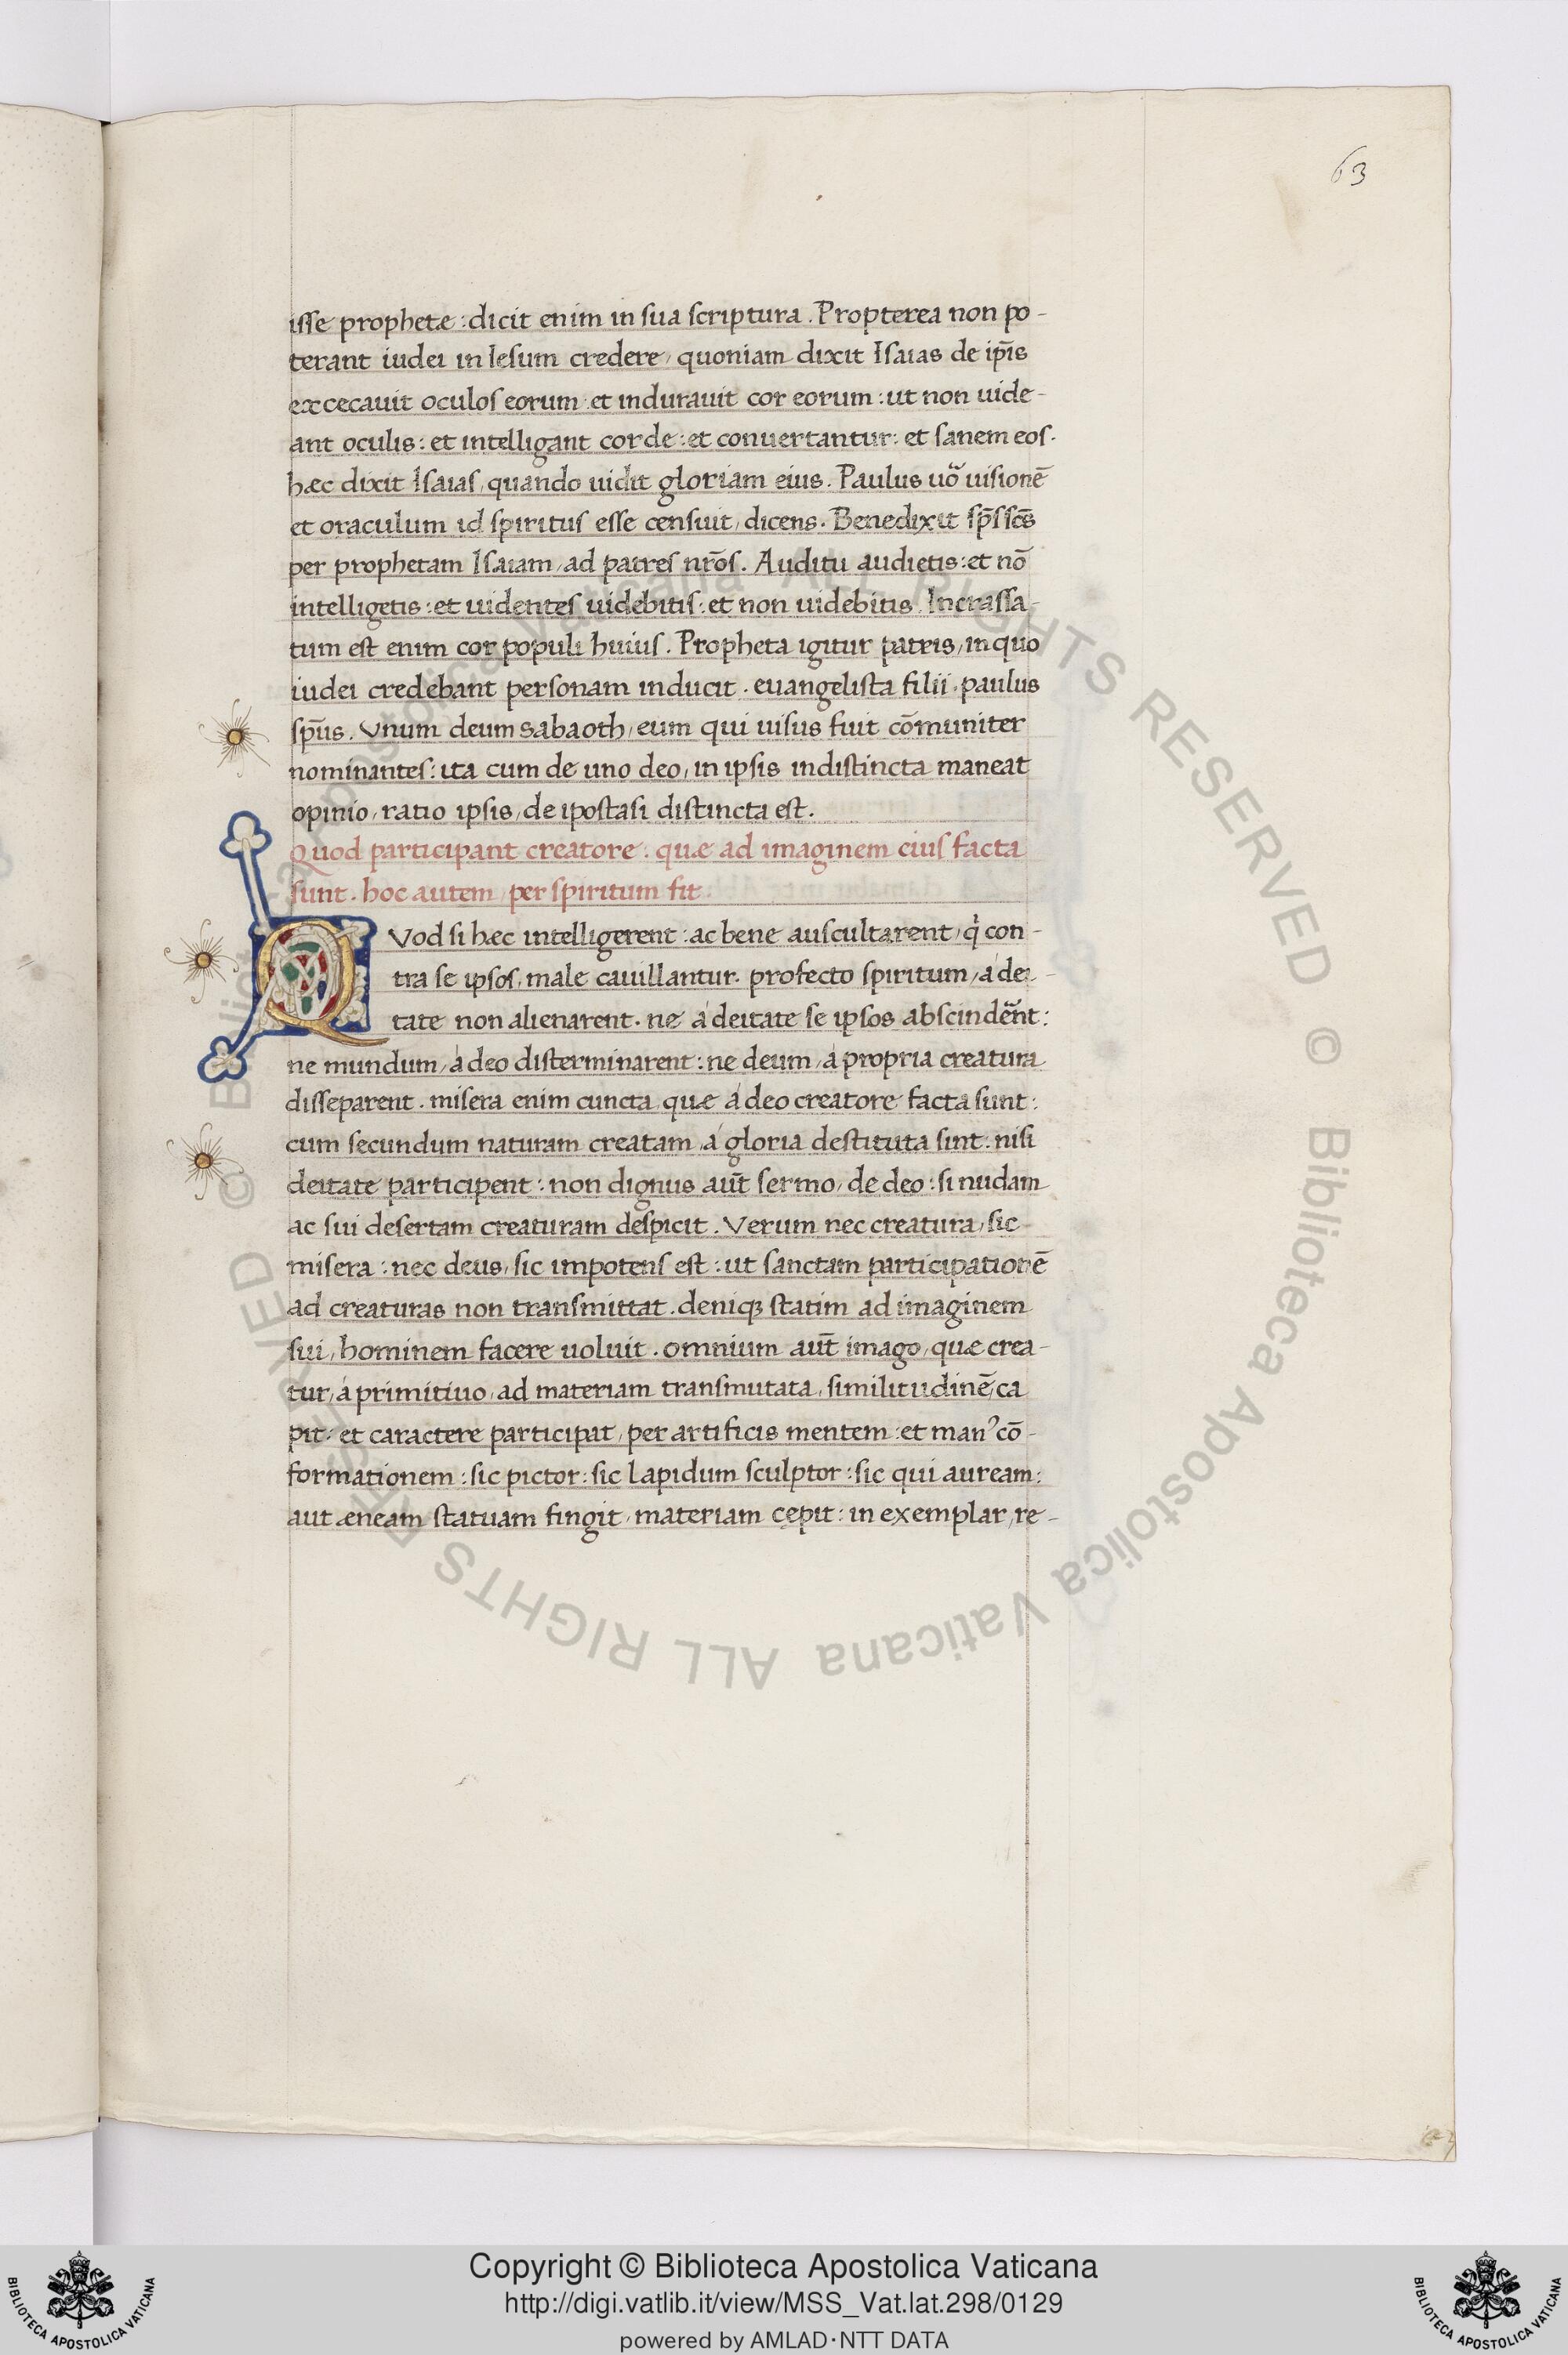 63
isse prophetæ : dicit enim in sua scriptura . Propterea non po-
terant iudei in Iesum credere, quoniam dixit Isaias de ip̄is
excecauit oculos eorum et indurauit cor eorum : ut non uide-
ant oculis : et intelligant corde : et conuertantur : et sanem eos .
hæc dixit Isaias, quando uidit gloriam eius . Paulus uõ uisionē
et oraculum id spiritus esse censuit, dicens . Benedixit sp̄s scs̄
per prophetam Isaiam, ad patres nr̄os . Auditu audietis : et nō
intelligetis : et uidentes uidebitis : et non uidebitis . Incrassa-
tum est enim cor populi huius . Propheta igitur patris, in quo
iudei credebant personam inducit . euangelista filii . paulus
sp̄us . Vnum deum sabaoth, eum qui uisus fuit cōmuniter
nominantes : ita cum de uno deo, in ipsis indistincta maneat
opinio, ratio ipsis, de ipostasi distincta est .
Quod participant creatore : quæ ad imaginem eius facta
sunt . hoc autem, per spiritum fit .
QVod si hæc intelligerent : ac bene auscultarent, q̇ con-
tra se ipsos, male cauillantur . profecto spiritum, á dei-
tate non alienarent . ne á deitate se ipsos abscindēnt :
ne mundum, á deo disterminarent : ne deum, á propria creatura
disseparent . misera enim cuncta, quæ á deo creatore facta sunt :
cum secundum naturam creatam, á gloria destituta sint : nisi
deitate participent : non dignus aūt sermo, de deo : si nudam
ac sui desertam creaturam despicit . Verum nec creatura, sic
misera : nec deus, sic impotens est : ut sanctam participationē
ad creaturas non transmittat . deniqꝫ statim ad imaginem
sui, hominem facere uoluit . omnium aūt imago, quæ crea-
tur, á primitiuo, ad materiam transmutata, similitudinē, ca
pit : et caractere participat, per artificis mentem : et manꝰ cō-
formationem : sic pictor : sic lapidum sculptor : sic qui auream :
aut æneam statuam fingit, materiam cępit : in exemplar, re-
© Biblioteca Apostolica Vaticana ALL RIGHTS RESERVED
© Biblioteca Apostolica Vaticana ALL RIGHTS RESERVED
Copyright © Biblioteca Apostolica Vaticana
http://digi.vatlib.it/view/MSS_Vat.lat.298/0129
powered by AMLAD·NTT DATA
BIBLIOTECA APOSTOLICA VATICANA
BIBLIOTECA APOSTOLICA VATICANA